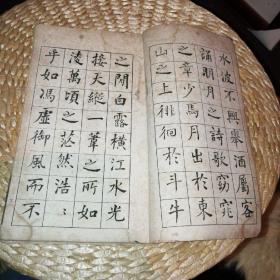 水波不興舉酒屬客
誦明月之詩歌窈窕
之章少焉月出於東
山之上徘徊於斗牛
之間白露橫江水光
接天縱一葦之所如
淩萬頃之茫然浩〻
乎如馮虛御風而不